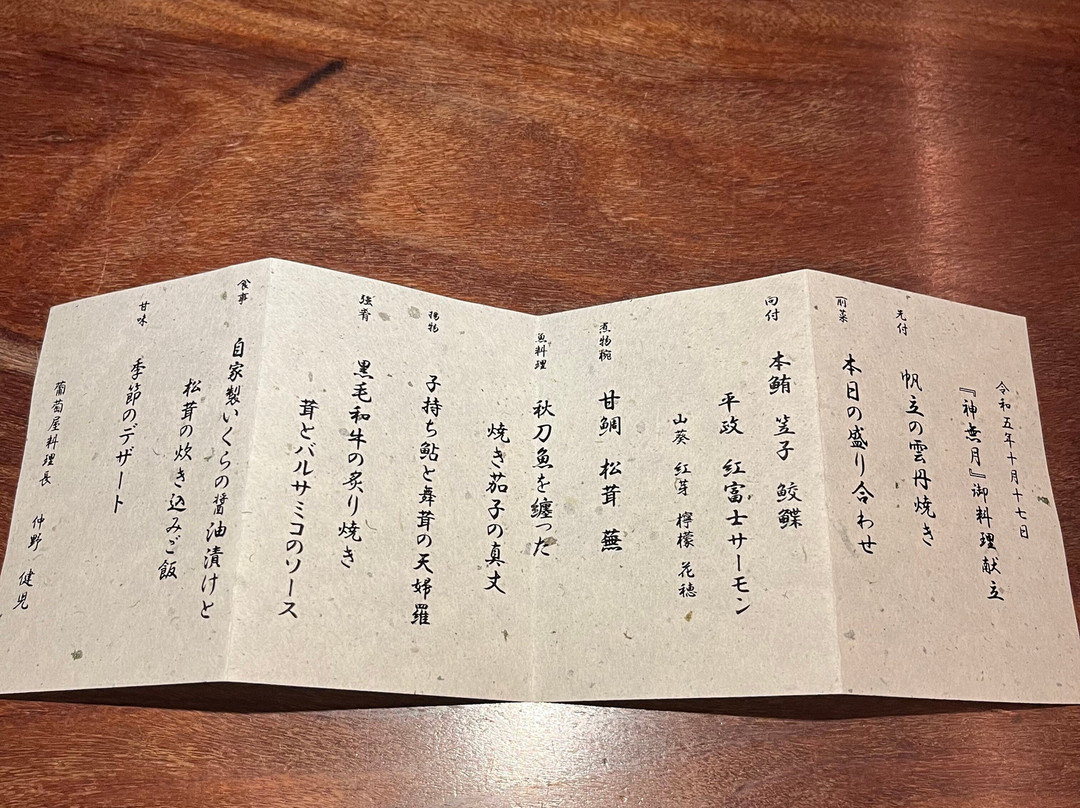 令和五年十月十七日
『神無月』御料理献立
先付
帆立の雲丹焼き
前菜
本日の盛り合わせ
向付
本鮪 笠子 鮫鰈
平政 紅富士サーモン
山葵 紅芽 檸檬 花穂
煮物椀
甘鯛 松茸 蕪
魚料理
秋刀魚を纏った
焼き茄子の真丈
揚物
子持ち鮎と舞茸の天婦羅
強肴
黒毛和牛の炙り焼き
茸とバルサミコのソース
食事
自家製いくらの醤油漬けと
松茸の炊き込みご飯
甘味
季節のデザート
葡萄屋料理長 仲野 健児